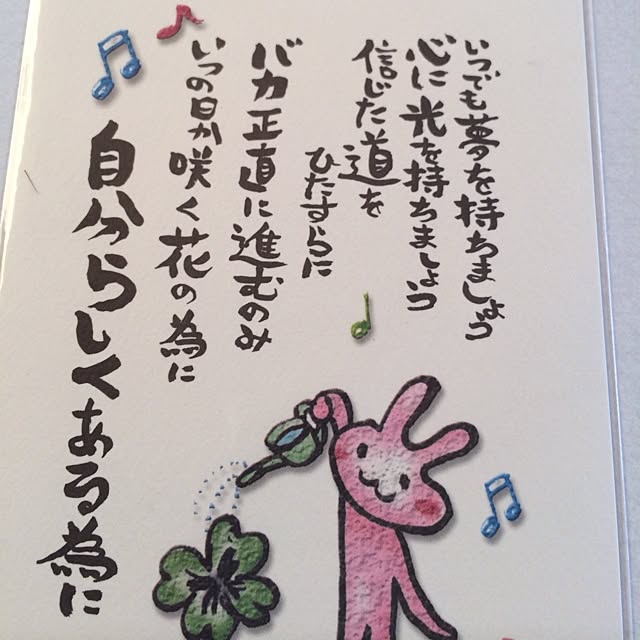 いつでも夢を持ちましょう
心に光を持ちましょう
信じた道を
ひたすらに
バカ正直に進むのみ
いつの日か咲く花の為に
自分らしくある為に